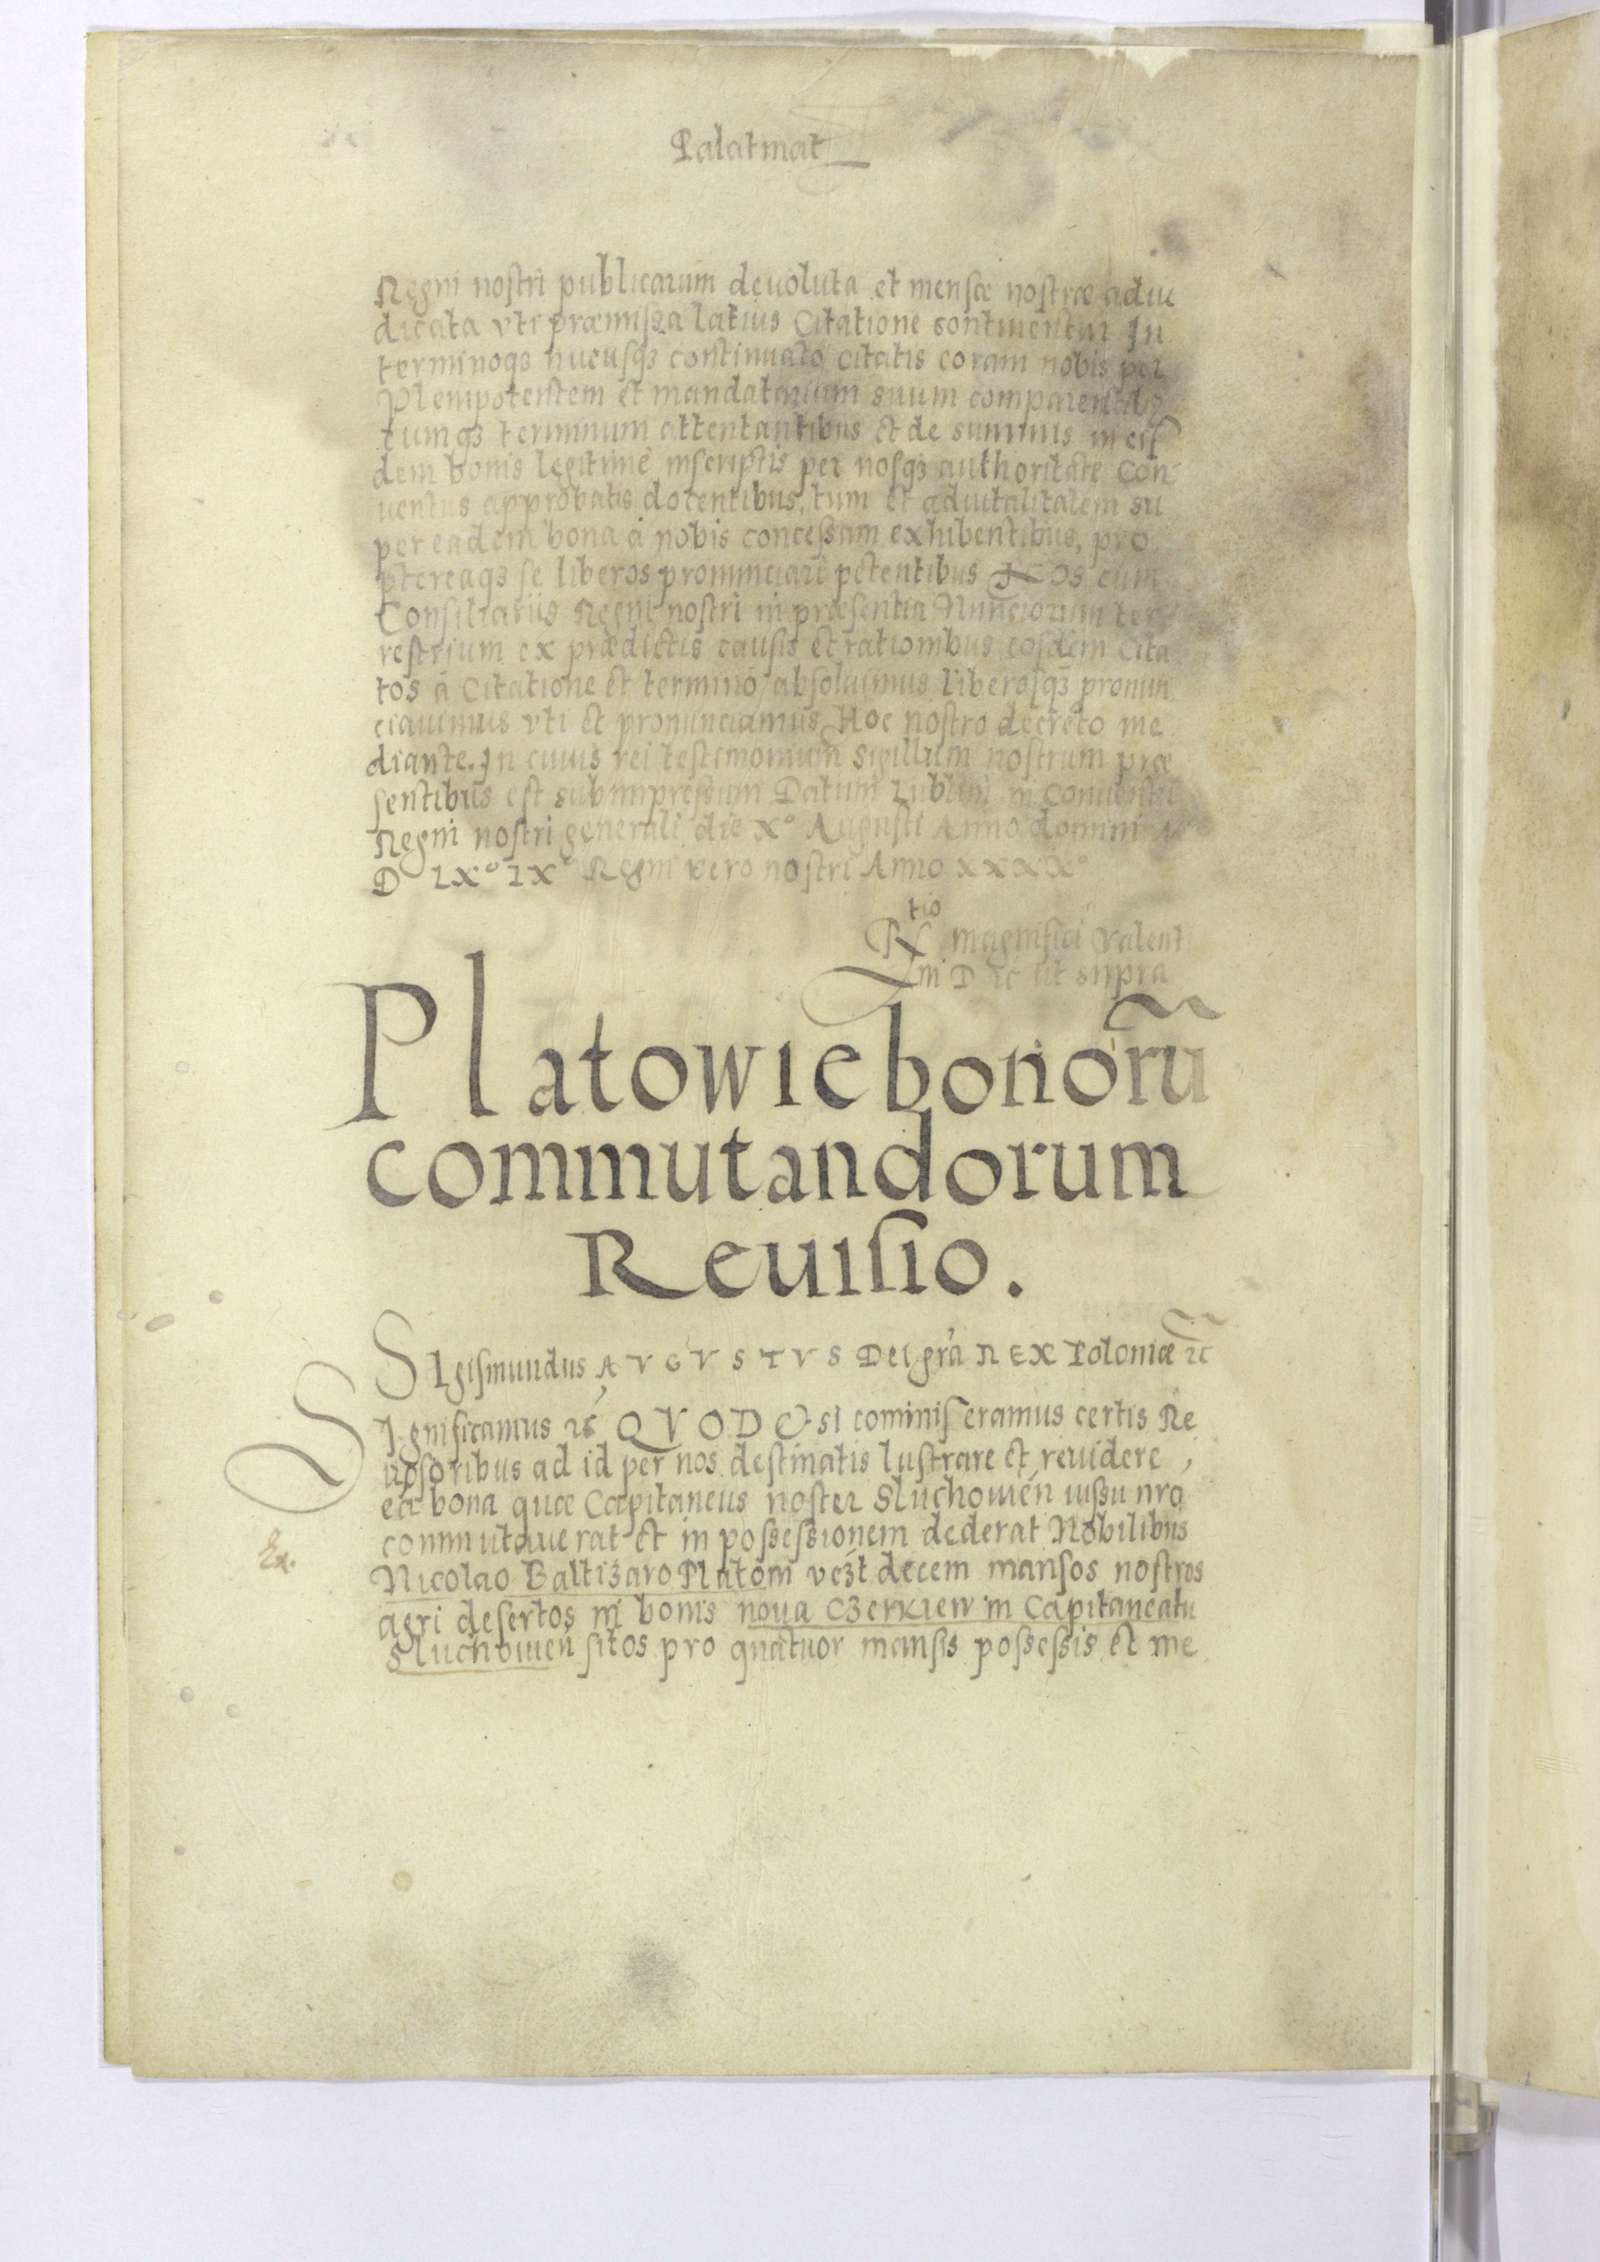 Palatinat
Regni nostri publicarum deuoluta et mensæ nostræ adiu
dicata vti præmissa latius Citatione continentur In
terminoqȝ hucusqȝ continuato citatis coram nobis per
Plenipotentem et mandatarium suum comparentibꝰ
eumqȝ terminum attentantibus et de summis in eiſ
dem bonis legitime inscriptis per nosqȝ authoritate Con
uentus approbatis docentibus, tum et aduitalitatem su
per eadem bona à nobis concessam exhibentibus, pro
ptereaqȝ se liberos pronunciari petentibus NOS cum
Consiliariis Regni nostri in præsentia Nunciorum ter
restrium ex prædictis causis et rationibus eosdem Cita
tos à Citatione et termino absoluimus liberosqȝ pronun
ciauimus vti et pronunciamus Hoc nostro decreto me
diante. In cuius rei testimonium Sigillum nostrum præ
sentibus est subimpressum Datum Lublini in Conuentu
Regni nostri generali die X° Augusti Anno domini M
D LX° IX° Regni vero nostri Anno XXXX°
Rl tio magnifici Valent
ini D ꝛc ut supra
Platowie bonorū
commutandorum
Reuisio.
SIgismundus AVGVSTVS Dei gra REX Poloniæ ꝛc
SIgnificamus ꝛc QVOD &si commiseramus certis Re
uisoribus ad id per nos destinatis lustrare et reuidere
ea bona quæ Capitaneus noster Sluchouien iussu nro
commutauerat et in possessionem dederat Nobilibus
Nicolao Baltizaro Platom vezt decem mansos nostros
agri desertos in bonis noua CZerkiew in Capitaneatu
Sluchouien sitos pro quatuor mansis possessis et me
Ex.